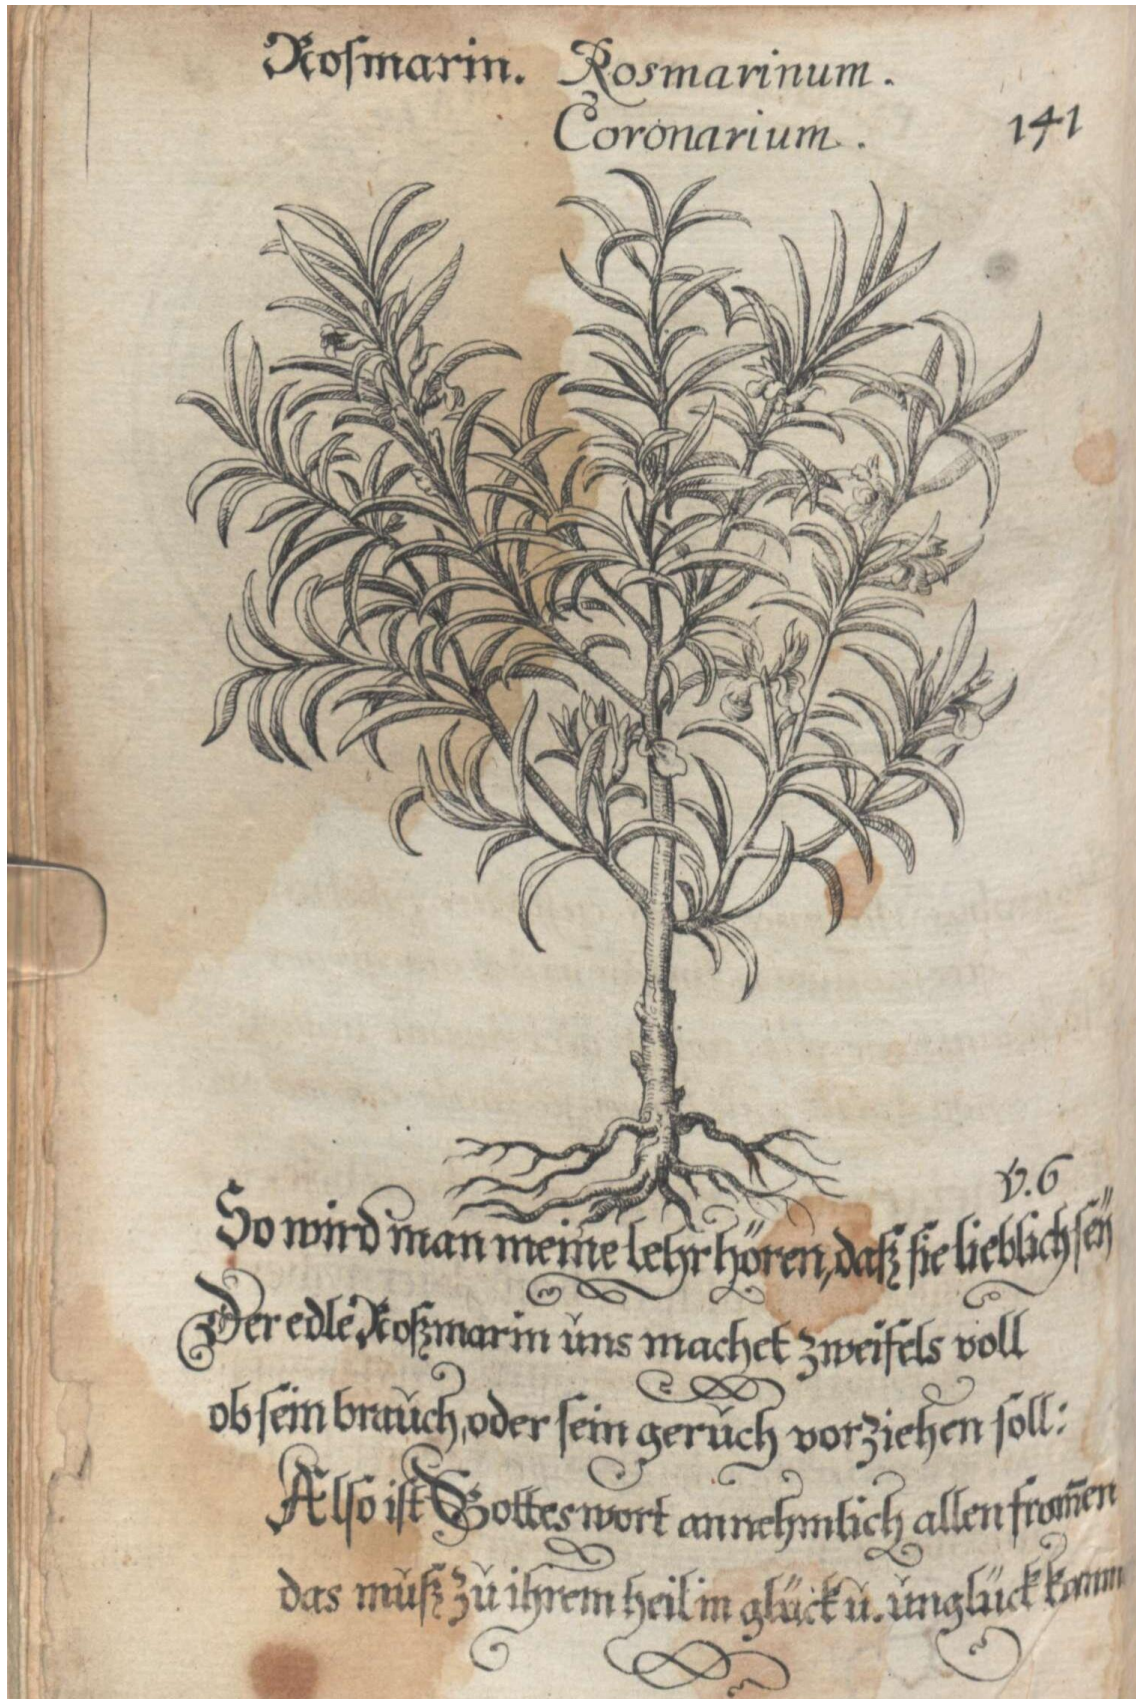 Rosmarin. Rosmarinum.
Coronarium.
141
v. 6
So wird man meine lehr hören, daß sie lieblich seÿ
Der edle Roßmarin uns machet zweifels voll
ob sein brauch, oder sein geruch vorziehen soll:
Also ist Gottes wort annehmlich allen from̅en
das muß zu ihrem heil in glück u. unglück komm